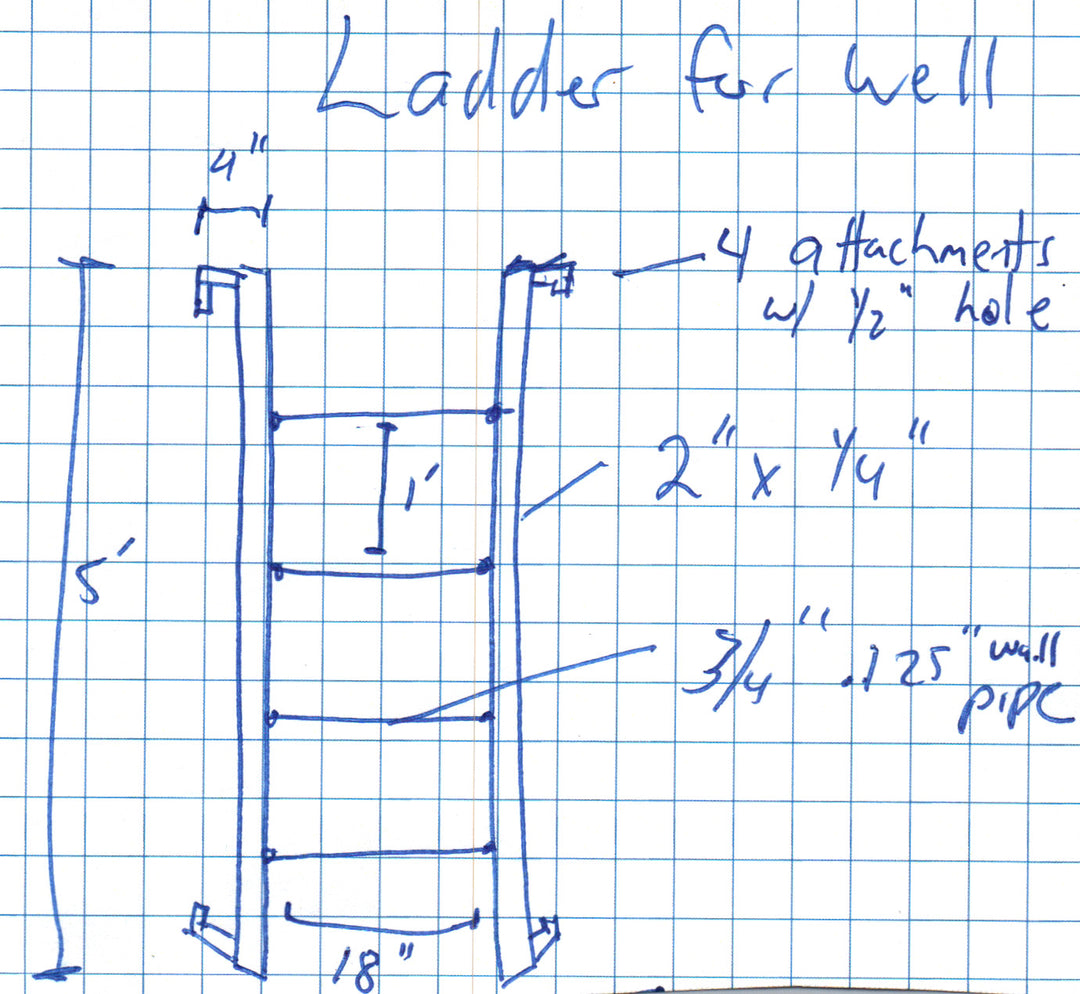 Ladder for well
4"
4 attachments
w/ 1/2" hole
2" x 1/4"
1'
5'
3/4" .125" wall
pipe
18"